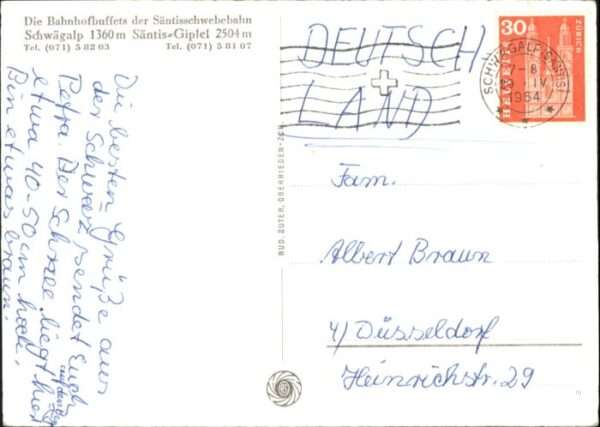 Die Bahnhofbuffets der Säntisschwebebahn
Schwägalp 1360 m Säntis-Gipfel 2504 m
Tel. (071) 5 82 03 Tel. (071) 5 81 07
Die besten Grüße aus
der Schweiz sendet Euch
Petra. Der Schnee liegt hier
auf den
etwa 40-50 cm hoch.
Bin etwas braun.
BUD. SUTER, OBERRIEDEN-ZCH
DEUTSCH
LAND
30
ZÜRICH
HELVETIA
SCHWÄGALP (SÄNTIS)
7-8
IV
1964
Fam.
Albert Braun
4/ Düsseldorf
Heinrichstr. 29